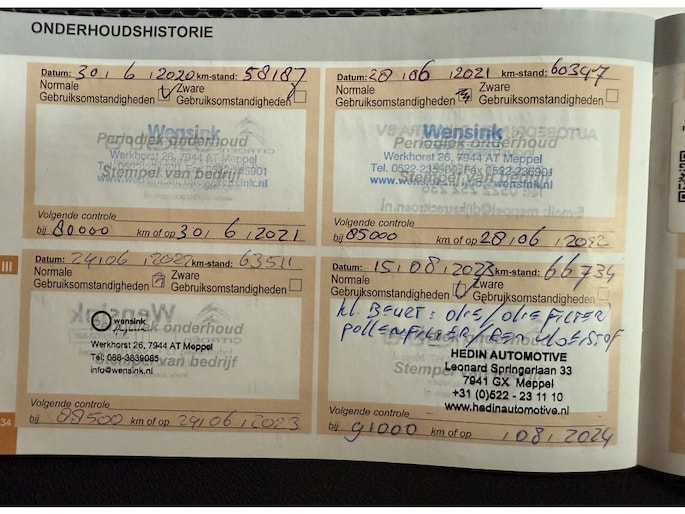 ONDERHOUDSHISTORIE
Datum: 30, 6, 2020 km-stand: 58187
Normale Zware
Gebruiksomstandigheden Gebruiksomstandigheden
Wensink
Periodiek onderhoud
Werkhorst 26, 7944 AT Meppel
Stempel van bedrijf
Volgende controle
bij 80000 km of op 30, 6, 2021
Datum: 28, 06, 2021 km-stand: 60347
Normale Zware
Gebruiksomstandigheden Gebruiksomstandigheden
Wensink
Periodiek onderhoud
Werkhorst 26, 7944 AT Meppel
Stempel van bedrijf
Volgende controle
bij 85000 km of op 28, 06, 2022
III
Datum: 24, 06, 2022 km-stand: 63511
Normale Zware
Gebruiksomstandigheden Gebruiksomstandigheden
wensink
Periodiek onderhoud
Werkhorst 26, 7944 AT Meppel
Tel: 088-3839085
Stempel van bedrijf
info@wensink.nl
Volgende controle
bij 88500 km of op 24, 06, 2023
Datum: 15, 08, 2023 km-stand: 66734
Normale Zware
Gebruiksomstandigheden Gebruiksomstandigheden
kl. BEURT: OLIE/OLIEFILTER
POLLENFILTER/REMVLOEISTOF
HEDIN AUTOMOTIVE
Leonard Springerlaan 33
7941 GX Meppel
+31 (0)522 - 23 11 10
www.hedinautomotive.nl
Volgende controle
bij 91000 km of op , 08, 2024
34